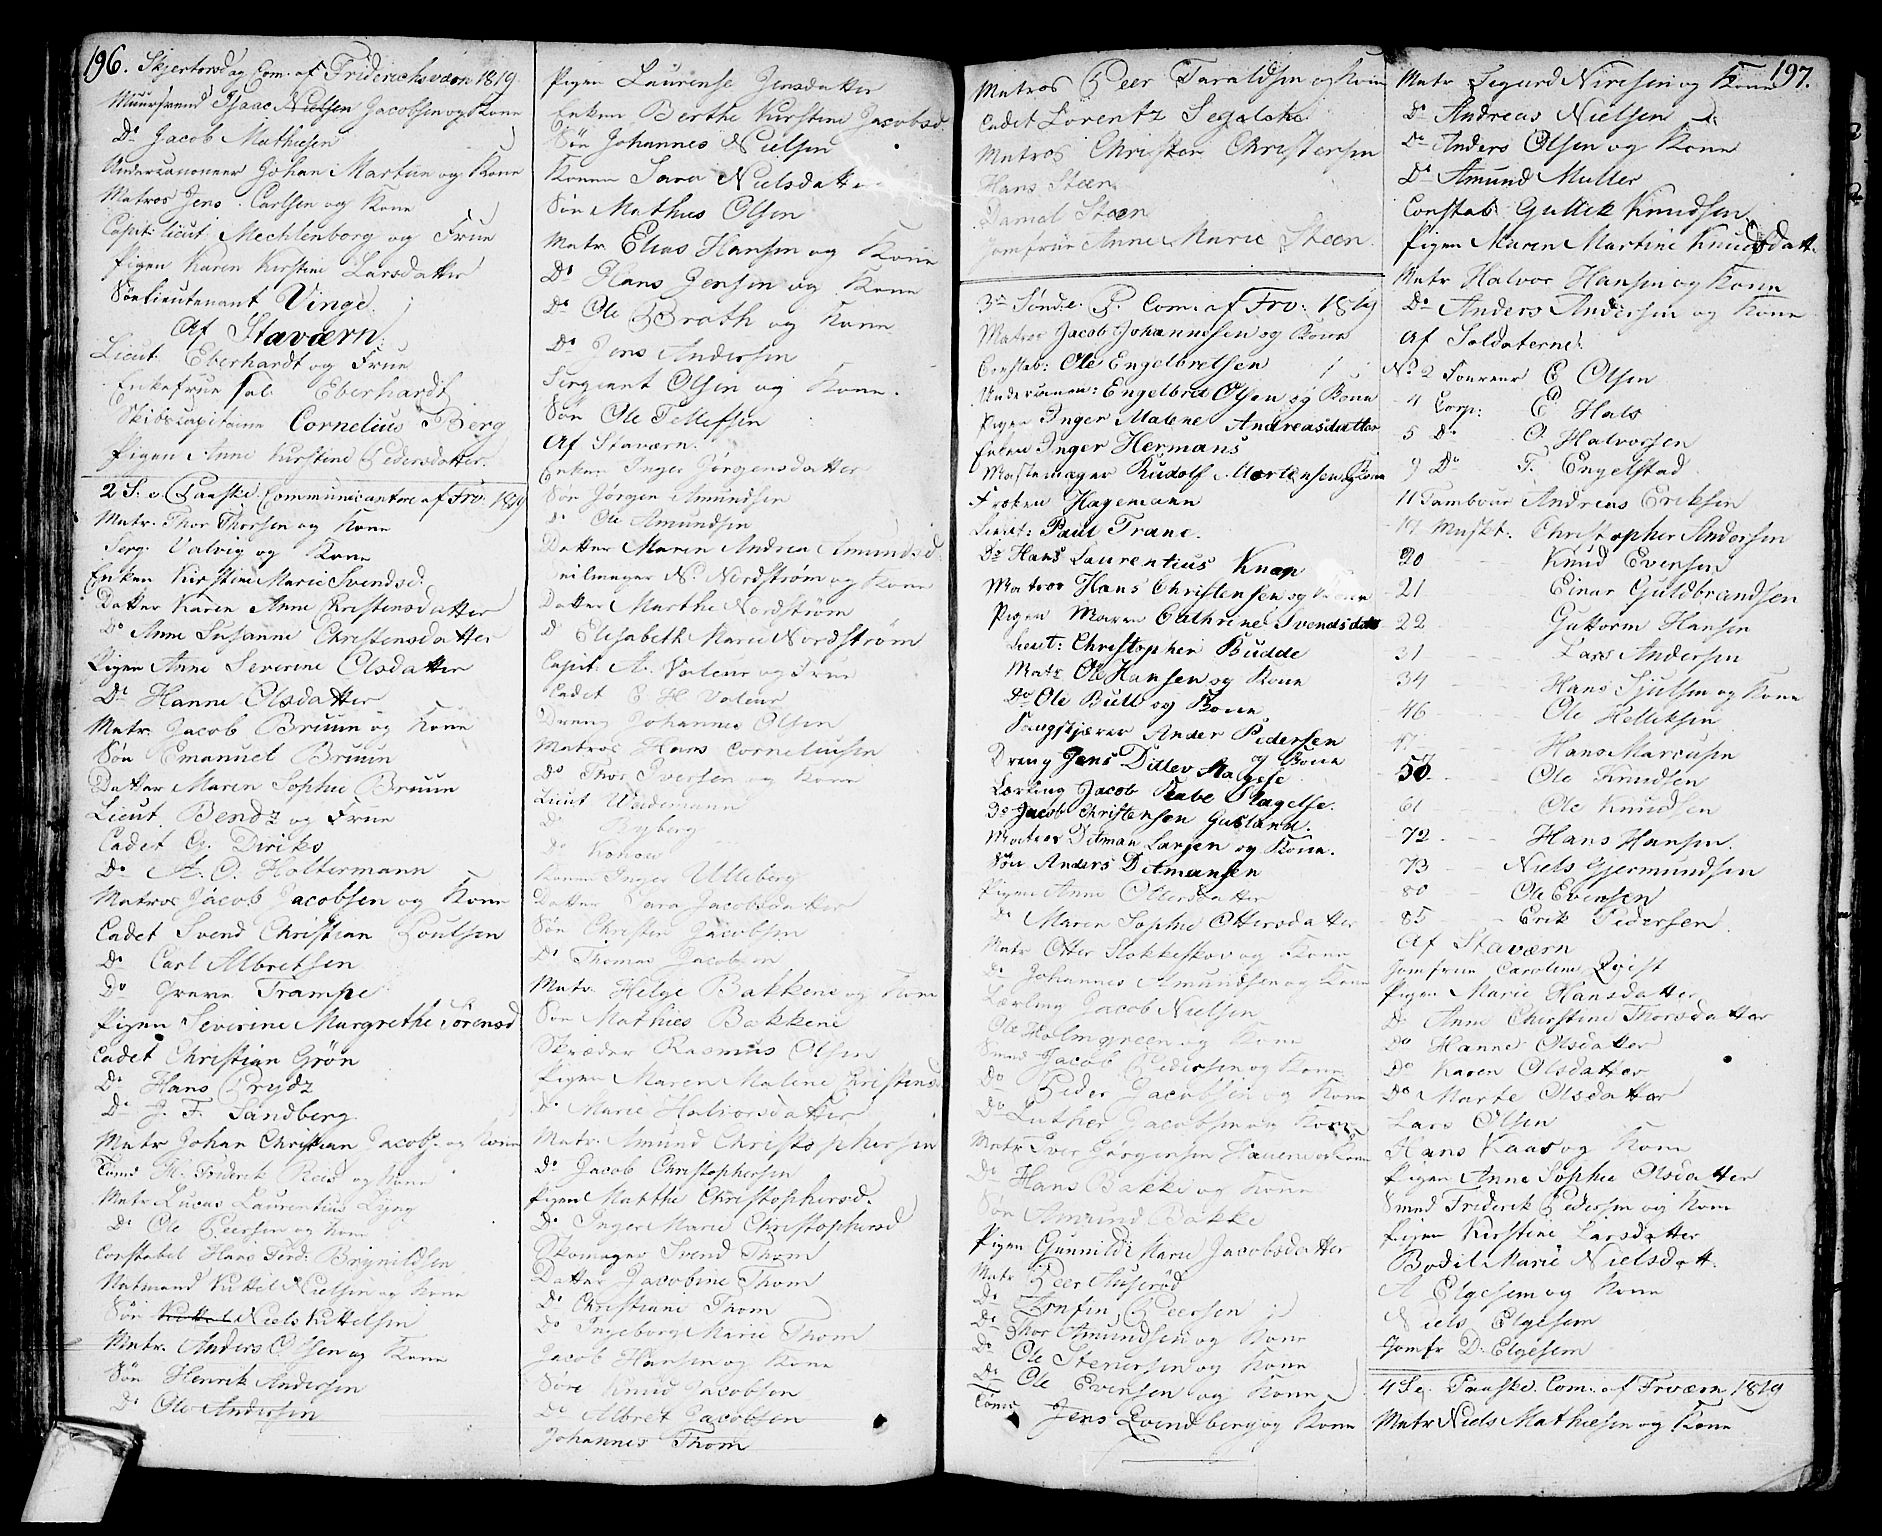 196.
Skjertorsdag Com. af Friderichsværn 1819.
Muursvend Isaac Nielsen Jacobsen og Kone
Do Jacob Mathiesen
Undercanoneer Johan Martin og Kone
Matros Jens Carlsen og Kone
Capit: Lieut: Mechlenborg og Frue
Pigen Karen Kirstine Larsdatter
Sölieutenant Vinge
Af Staværn:
Lieut. Eberhardt og Frue
Enkefrue sal. Eberhardt
Skibscapitaine Cornelius Berg
Pigen Anne Kirstine Pedersdatter.
2 S. e. Paaske Communicantere af Frv: 1819
Matr. Thor Thorsen og Kone
Serg. Valvig og Kone
Enken Kirstine Marie Svendsd.
Datter Karen Anne Christensdatter
Do Anne Susanne Christensdatter
Pigen Anne Severine Olsdatter
Do Hanne Olsdatter
Matr. Jacob Bruun og Kone
Sön Emanuel Bruun
Datter Maren Sophie Bruun
Lieut. Bendz og Frue
Cadet G. Diriks
Do A. C. Holtermann
Matros Jacob Jacobsen og Kone
Cadet Svend Christian Poulsen
Do Carl Albretsen
Do Greve Trampe
Pigen Severine Margrethe Sörensd
Cadet Christian Grön
Do Hans Prydz
Do J. F. Sandberg
Matr Johan Christian Jacobs. og Kone
Töms M. Friderik Reis og Kone
Matr. Lucas Laurentius Lyng
Do Ole Peersen og Kone
Constabel Hans Ferd: Brynildsen
Natmand Kittel Nielsen og Kone
Sön Kittel Niels Kittelsen
Matr. Anders Olsen og Kone
Sön Henrik Andersen
Do Ole Andersen
Pigen Laurense Jensdatter
Enken Berthe Kirstine Jacobsd.
Sön Johannes Nielsen
Konen Sara Nielsdatter
Sön Mathies Olsen
Matr. Elias Hansen og Kone
Do Hans Jensen og Kone
Do Ole Broth og Kone
Do Jens Andersen
Sergeant Olsen og Kone.
Sön Ole Tellefsen
Af Staværn.
Enken Inger Jörgensdatter
Sön Jörgen Amundsen
Do Ole Amundsen
Datter Maren Andrea Amundsd.
Seilmager N. Nordström og Kone
Datter Marthe Nordström
Do Elisabeth Marie Nordström
Capit. A. Valeur og Frue
Cadet C. H. Valeur
Dreng Johannes Olsen
Matros Hans Corneliusen
Do Thor Iversen og Kone
Lieut Wedemann
Do Ryberg
Do Konow
Konen Inger Ulleberg
Datter Sara Jacobsdatter
Sön Christen Jacobsen
Do Thomas Jacobsen
Matr. Helge Bakkene og Kone
Sön Mathies Bakkene
Skræder Rasmus Olsen
Pigen Maren Malene Christensd
Do Marie Halvorsdatter
Matr. Amund Christophersen
Do Jacob Christophersen
Pigen Marthe Christophersd.
Do Inger Marie Christophersd
Skomager Svend Thom
Datter Jacobine Thom
Do Christiane Thom
Do Ingeborg Marie Thom
Jacob Hansen og Kone
Sön Knud Jacobsen
Do Albret Jacobsen
Johannes Thom
Matros Peer Taraldsen og Kone
Cadet Lorentz Segelcke
Matros Christen Christensen
Hans Steen
Daniel Steen
Jomfrue Anne Marie Steen.
3die Sönd. e. P. Com: af Frv: 1819
Matros Jacob Johannesen og Kone
Constab: Ole Engelbretsen
Undercanon: Engelbret Olsen og Kone
Pigen Inger Malene Andreasdatter
Enken Inger Hermans
Mastemager Rudolf Mortensen og Kone
Fröken Hagemann
Lieut: Paul Trane.
Do Hans Laurentius Knap
Matros Hans Christensen og Kone
Pigen Maren Cathrine Svendsdat
Lieut: Christopher Budde
Matr. Ole Hansen og Kone
Do Ole Bull og Kone
Anders Pedersen og Kone
Dreng Jens Ditlev Slagelse
Lærling Jacob Rabe Slagelse.
Do Jacob Christensen
Matros Ditman Larsen og Kone.
Sön Anders Ditmansen
Pigen Anne Ottersdatter
Do Maren Sophie Ottersdatter
Matr Otter Stokkeskov og Kone
Do Johannes Amundsen og Kone
Lærling Jacob Nielsen
Ole Holmgreen og Kone
Smed Jacob Pedersen og Kone
Do Peder Jacobsen og Kone
Do Luther Jacobsen og Kone
Matr Iver Jörgensen Hauene og Kone
Do Hans Bakke og Kone
Sön Amund Bakke
Pigen Gunnilde Marie Jacobsdatter
Matr Peer Auseröd
Do Arnfin Peersen
Do Thor Amundsen og Kone
Do Ole Stenersen og Kone
Do Ole Evensen og Kone
Töms Jens Evendberg og Kone
197.
Matr Segurd Niresen og Kone
Do Andreas Nielsen
Do Anders Olsen og Kone
Do Amund Muller
Constab. Gullik Knudsen
Pigen Maren Martine Knudsdatt.
Matr Halvor Hansen og Kone
Do Anders Andersen og Kone
Af Soldaterne:
No 2 Foureer E. Olsen
4 Corp: E. Hals
5 Do O. Halvorsen
9 Do F. Engelstad
11 Tambour Andreas Eriksen
17 Musket. Christopher Andersen
20 Knud Evensen
21 Einar Guldbrandsen
22 Guttorm Hansen
31 Lars Andersen
34 Hans Sjulsen og Kone
46 Ole Helliksen
47 Hans Marcusen
50 Ole Knudsen
61 Ole Knudsen
72 Hans Hansen.
73 Niels Gjermundsen
80 Ole Evensen
85 Erik Pedersen
Af Staværn
Jomfrue Caroline Qvist
Pigen Marie Hansdatter
Do Anne Christine Thorsdatter
Do Hanne Olsdatter
Do Karen Olsdatter
Do Marte Olsdatter
Lars Olsen
Hans Kaas og Kone
Pigen Anne Sophie Olsdatter
Smed Friderik Pedersen og Kone
Pigen Kirstine Larsdatter
Bodil Marie Nielsdatt.
A. Elgesem og Kone
Niels Elgesem
Jomfr D. Elgesem
4 S. e. Paaske. Com. af Frværn 1819
Matr Niels Mathiesen og Kone